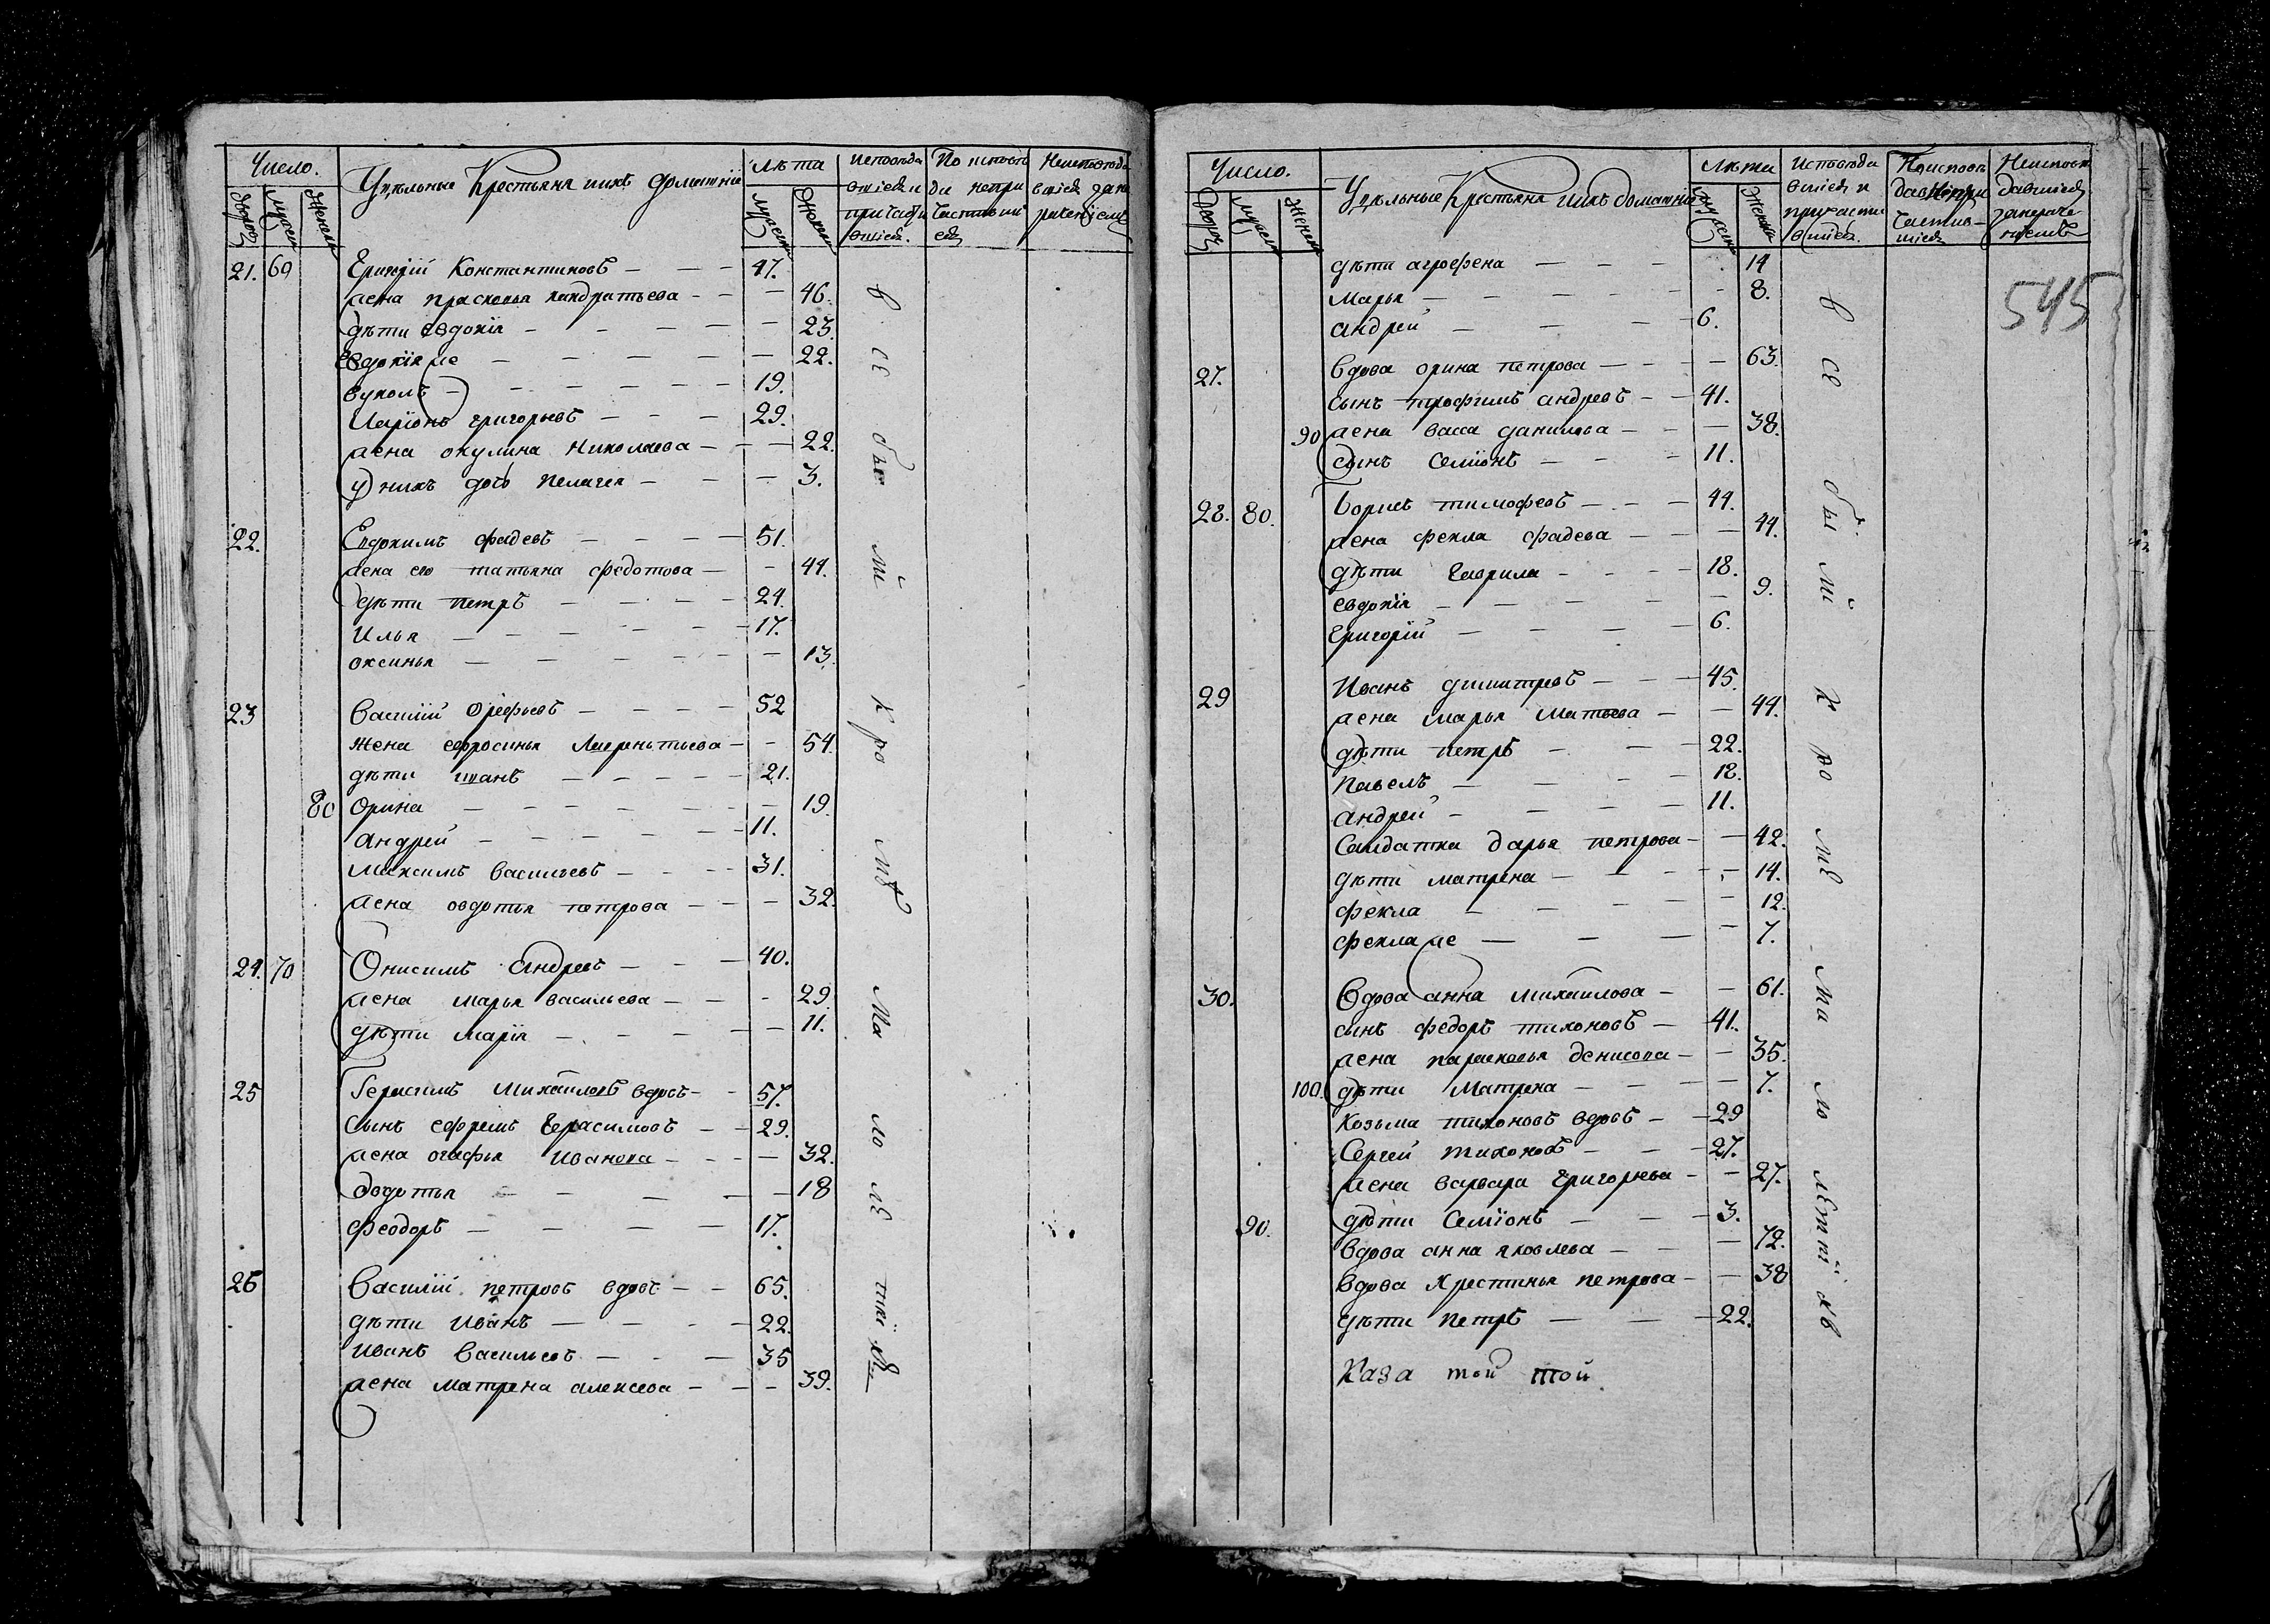 Число. Удѣльные Крестьяна иихъ домашнiе Лѣта Исповѣда вшiеся и причасти вшiеся. По исповѣ ди непри частивши еся Неисповѣда вшiеся
Дворов Мужеск Женска мужеск Женска
21. 69 Григорiй Константиновъ — — — 47.
жена прасковья кондратьева — — — 46.
дѣти евдокiя — — — — — 23.
Евдокiя же — — — — — 22.
вуколъ — — — — — 19.
Иларiонъ григорьевъ — — — 29.
жена окулина Николаева — — — 22.
у нихъ дочь пелагея — — — 3.
22. Евдокимъ фадеевъ — — — — 51.
жена его татьяна федотова — — 44.
дѣти петръ — — — — 24.
Илья — — — — — — 17.
оксинья — — — — — — 13.
23 Василiй Орефьевъ — — — — 52
Жена ефросинья Лаврентьева — — 54.
дѣти iванъ — — — — — 21.
80 Орина — — — — — — — 19
Андрей — — — — — — 11.
Максимъ Васильевъ — — — — 31.
жена овдотья петрова — — — 32.
24. 70 Онисимъ Андреевъ — — — 40.
жена марья васильева — — — 29
дѣти Марiя — — — — — — 11.
25 Герасимъ Михайловъ вдовъ — — 57.
Сынъ ефремъ Герасимовъ — — 29.
жена огафья Иванова — — — — 32.
Овдотья — — — — — — 18
Феодоръ — — — — 17.
26 Василiй петровъ вдовъ — — 65.
дѣти Иванъ — — — — 22.
Иванъ Васильевъ — — — 35
жена матрена алексеева — — — 39.
в се бы ми к ро мѣ ма ло лѣ тнi хъ
Число. Удѣльные Крестьяна иихъ домашнiе Лѣта Исповѣда вшiеся и причасти вшiеся. Неиспов давшiеся
Дворов Мужеск Женска Женска
дѣти агрофена — — — — 14
марья — — — — — — 8.
андрей — — — — 6.
545
27. вдова орина петрова — — — 63.
сынъ трофимъ андреевъ — — 41.
90 жена васса данилова — — — 38.
сынъ Семiонъ — — — 11.
28. 80. Борисъ тимофеевъ — — — 44.
жена фекла фадеева — — — 44.
дѣти гаврила — — — — 18.
евдокiя — — — — — 9.
григорiй — — — — 6.
29 Иванъ димитревъ — — — 45.
жена марья Матвеева — — 44.
дѣти петръ — — — 22.
павелъ — — — — 18.
андрей — — — — 11.
Салдатка дарья петрова — — 42.
дѣти матрена — — — — — 14.
фекла — — — — — 12.
фекла же — — — — 7.
30. вдова анна михайлова — — 61.
сынъ федоръ тихоновъ — 41.
жена парасковья денисова — — 35.
100. дѣти Матрена — — — — 7.
козьма тихоновъ вдовъ — — 29
Сергей тихоновъ — — — 27.
жена варвара григорьева — — 27.
90. дѣти Семiонъ — — — 3.
вдова анна яковлева — — — 72.
вдова Хрестинья петрова — — 38
дѣти петръ — — — 22.
каза той той
в се бы ми к ро мѣ ма ло лѣтнi хъ